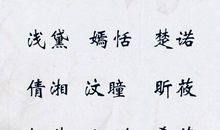 浅黛 嫣恬 楚诺
倩湘 汶瞳 昕莜